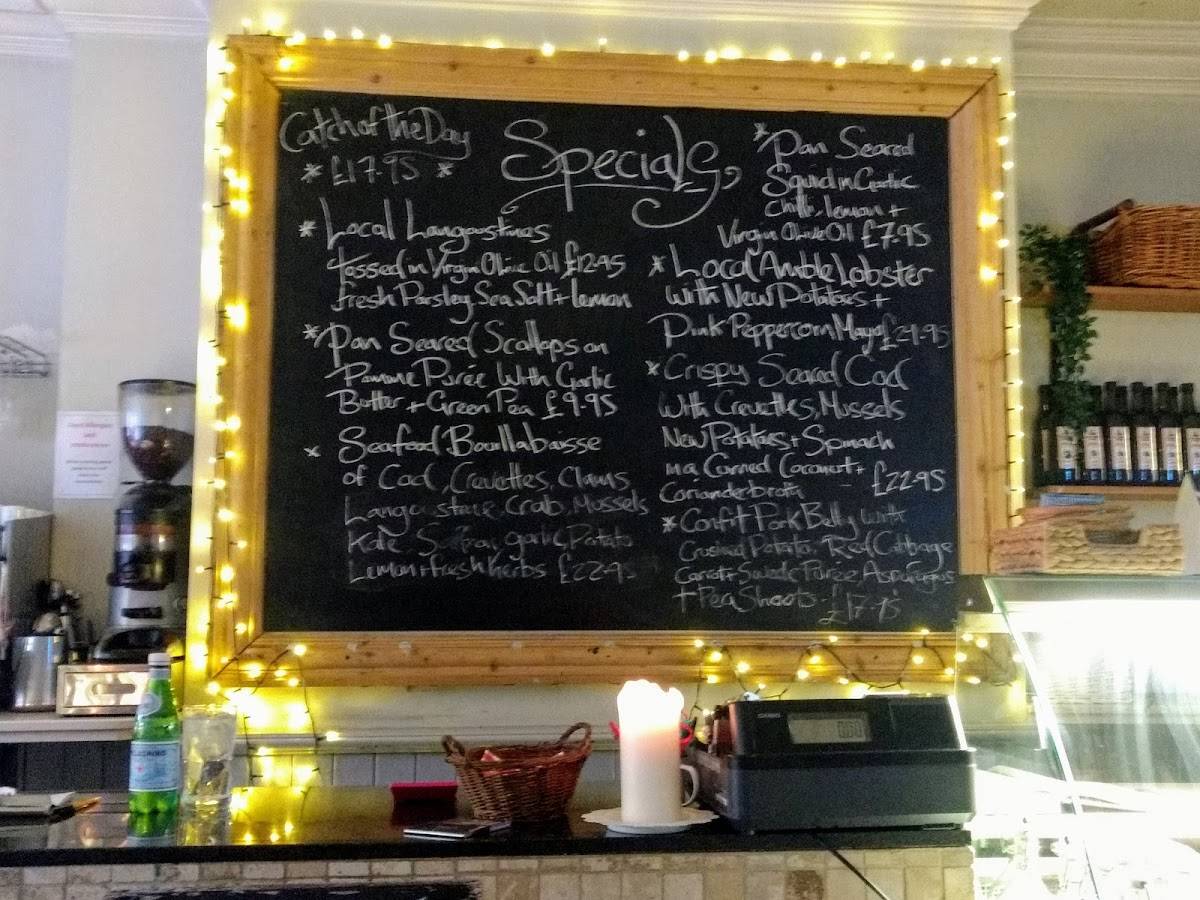 Catch of the Day
* £17.95 *
Specials
* Local Langoustines
tossed in Virgin Olive Oil £12.95
fresh Parsley Sea Salt + lemon
* Pan Seared Scallops on
Pomme Purée With Garlic
Butter + Green Pea £9.95
* Seafood Bouillabaisse
of Cod, Crevettes, Clams
Langoustine, Crab, Mussels
Kale Saffron, garlic, Potato
Lemon + fresh herbs £22.95
* Pan Seared
Squid in Garlic
Chilli, lemon +
Virgin Olive Oil £7.95
* Local Amble Lobster
with New Potatoes +
Pink Peppercorn Mayo £29.95
* Crispy Seared Cod
With Crevettes, Mussels
New Potatoes + Spinach
in a Curried Coconut +
Coriander broth £22.95
* Confit Pork Belly with
Crushed Potato, Red Cabbage
Carrot + Swede Purée, Asparagus
+ Pea Shoots. £17.95
CASIO